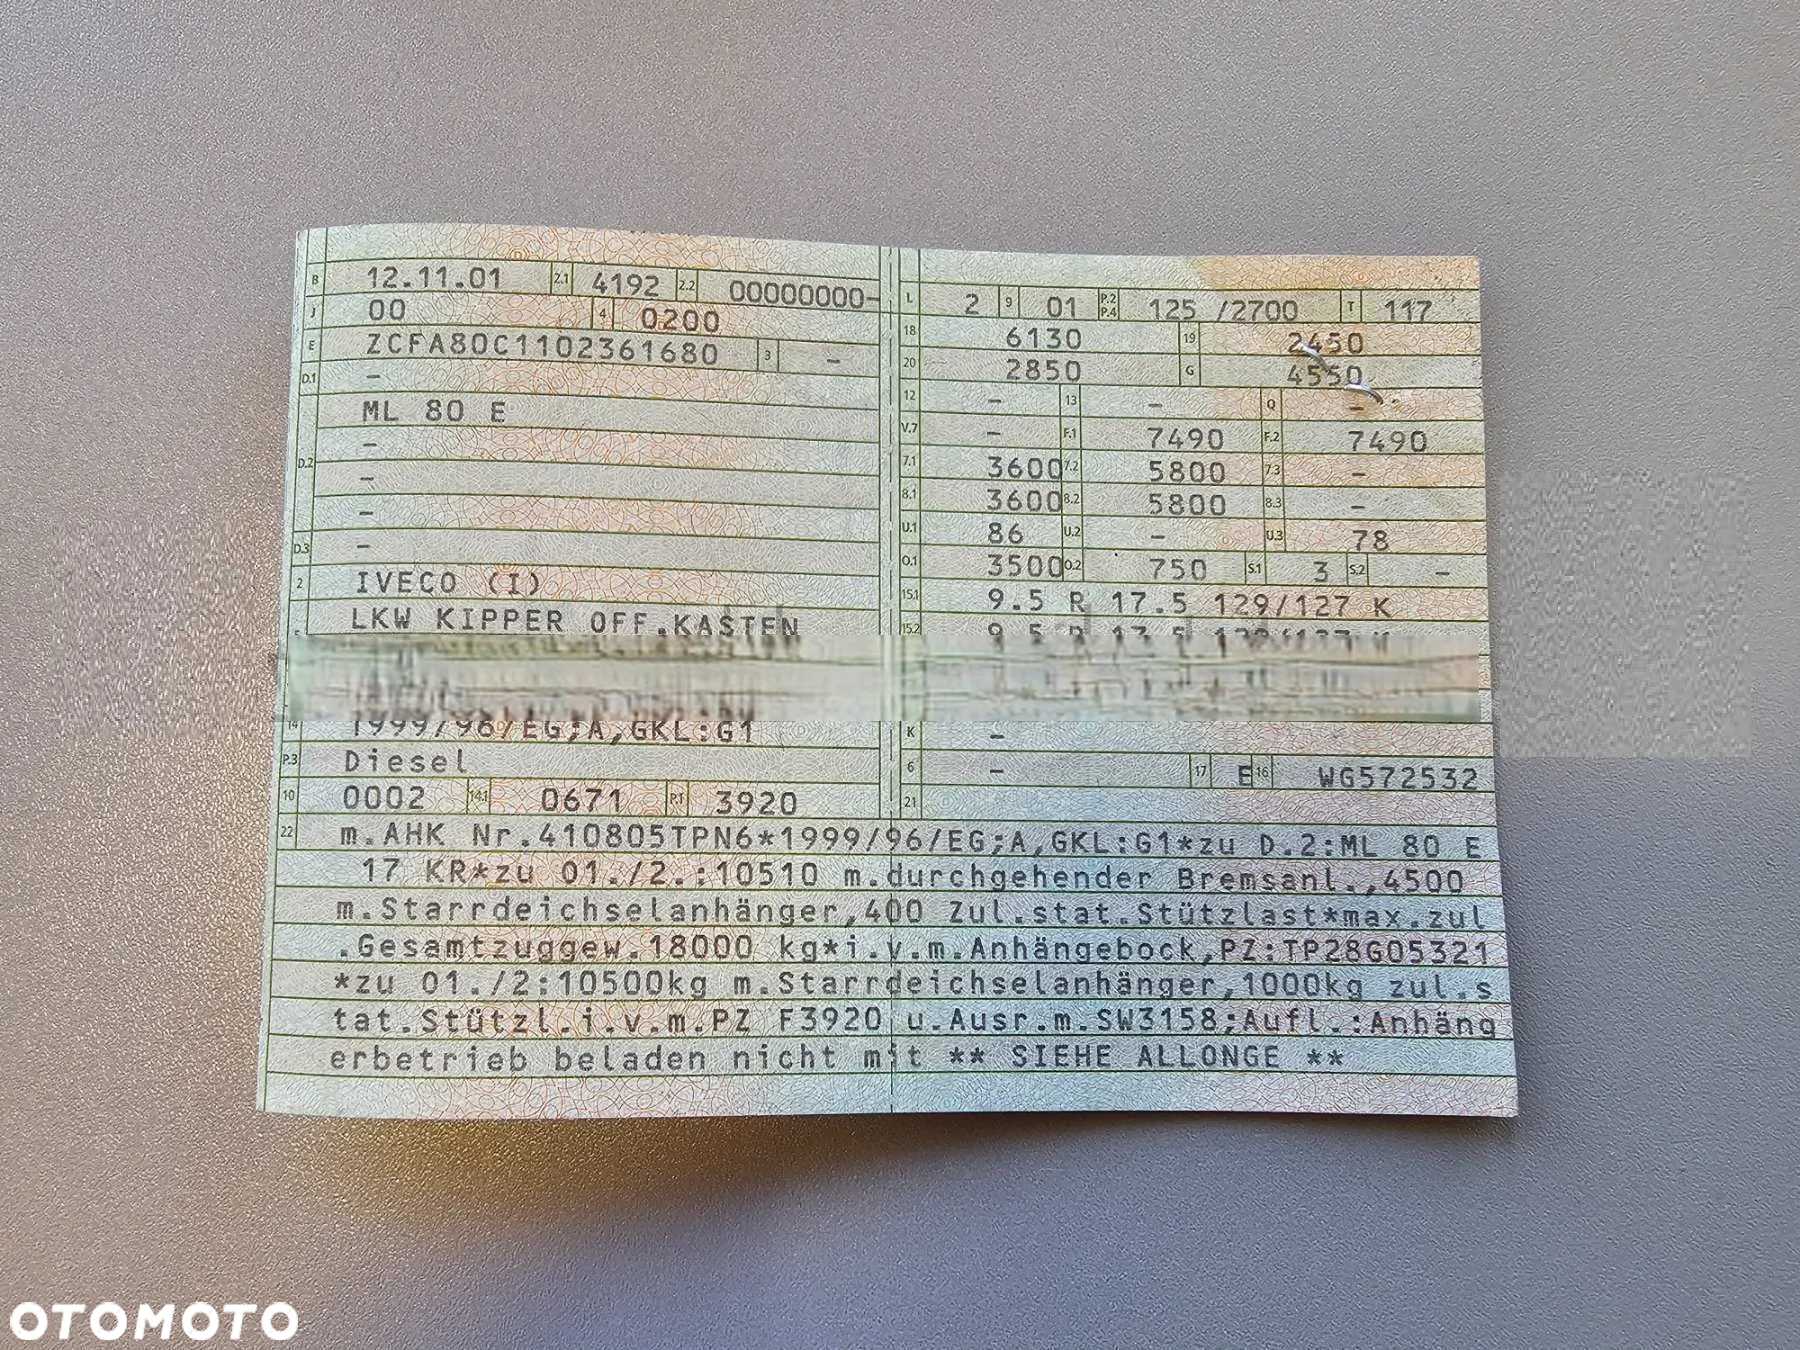 B 12.11.01 2.1 4192 2.2 00000000-
J 00 4 0200
E ZCFA80C1102361680 3 -
D.1 -
ML 80 E
-
D.2 -
-
D.3 -
2 IVECO (I)
LKW KIPPER OFF.KASTEN
14 1999/96/EG;A,GKL:G1
P.3 Diesel
10 0002 14.1 0671 P.1 3920
L 2 9 01 P.2 P.4 125 /2700 T 117
18 6130 19 2450
20 2850 G 4550
12 - 13 - Q -
V.7 - F.1 7490 F.2 7490
7.1 3600 7.2 5800 7.3 -
8.1 3600 8.2 5800 8.3 -
U.1 86 U.2 - U.3 78
O.1 3500 O.2 750 S.1 3 S.2 -
15.1 9.5 R 17.5 129/127 K
15.2 9.5 R 17.5 129/127 K
K -
6 - 17 E 16 WG572532
21
22 m.AHK Nr.410805TPN6*1999/96/EG;A,GKL:G1*zu D.2:ML 80 E
17 KR*zu 01./2.:10510 m.durchgehender Bremsanl.,4500
m.Starrdeichselanhänger,400 Zul.stat.Stützlast*max.zul
.Gesamtzuggew.18000 kg*i.v.m.Anhängebock,PZ:TP28G05321
*zu 01./2:10500kg m.Starrdeichselanhänger,1000kg zul.s
tat.Stützl.i.v.m.PZ F3920 u.Ausr.m.SW3158;Aufl.:Anhäng
erbetrieb beladen nicht mit ** SIEHE ALLONGE **
OTOMOTO